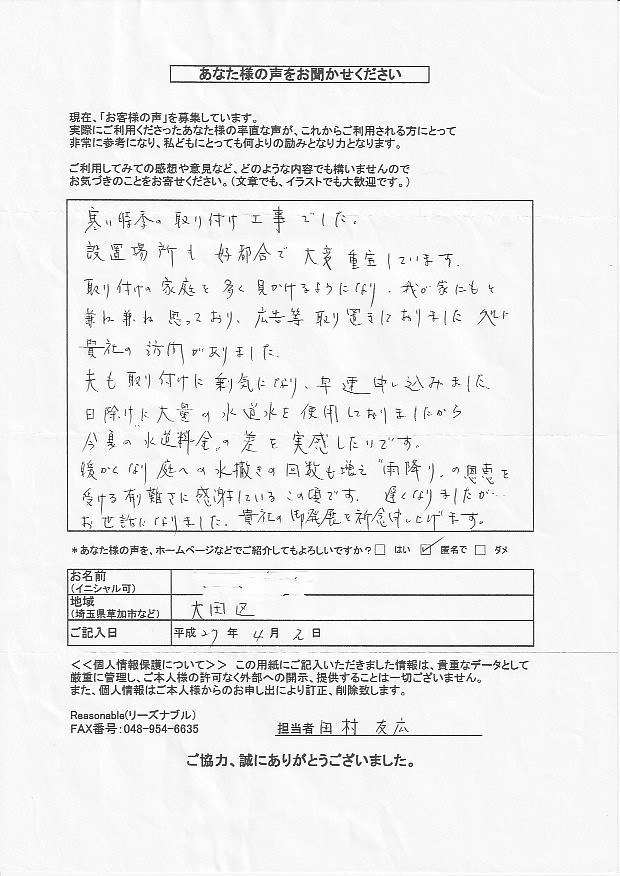 あなた様の声をお聞かせください
現在、「お客様の声」を募集しています。
実際にご利用くださったあなた様の率直な声が、これからご利用される方にとって
非常に参考になり、私どもにとっても何よりの励みとなり力となります。
ご利用してみての感想や意見など、どのような内容でも構いませんので
お気づきのことをお寄せください。（文章でも、イラストでも大歓迎です。）
寒い時季の取り付け工事でした。
設置場所も好都合で大変重宝しています。
取り付けの家庭を多く見かけるようになり、我が家にもと
兼ね兼ね思っており、広告等取り置きしておりました
貴社の訪問がありました。
夫も取り付けに乗気になり、早速申し込みました。
日除けに大量の水道水を使用しておりましたから
今夏の"水道料金"の差を実感したいです。
暖かくなり庭への水撒きの回数も増え"雨降り"の恩恵を
受ける有難さに感謝しているこの頃です。遅くなりましたが…
お世話になりました。貴社の御発展を祈念申し上げます。
*あなた様の声を、ホームページなどでご紹介してもよろしいですか？□ はい ☑ 匿名で □ ダメ
お名前
（イニシャル可）
地域
（埼玉県草加市など） 大田区
ご記入日 平成27年4月2日
＜＜個人情報保護について＞＞ この用紙にご記入いただきました情報は、貴重なデータとして
厳重に管理し、ご本人様の許可なく外部への開示、提供することは一切ございません。
また、個人情報はご本人様からのお申し出により訂正、削除致します。
Reasonable（リーズナブル）
FAX番号：048-954-6635 担当者 田村友広
ご協力、誠にありがとうございました。